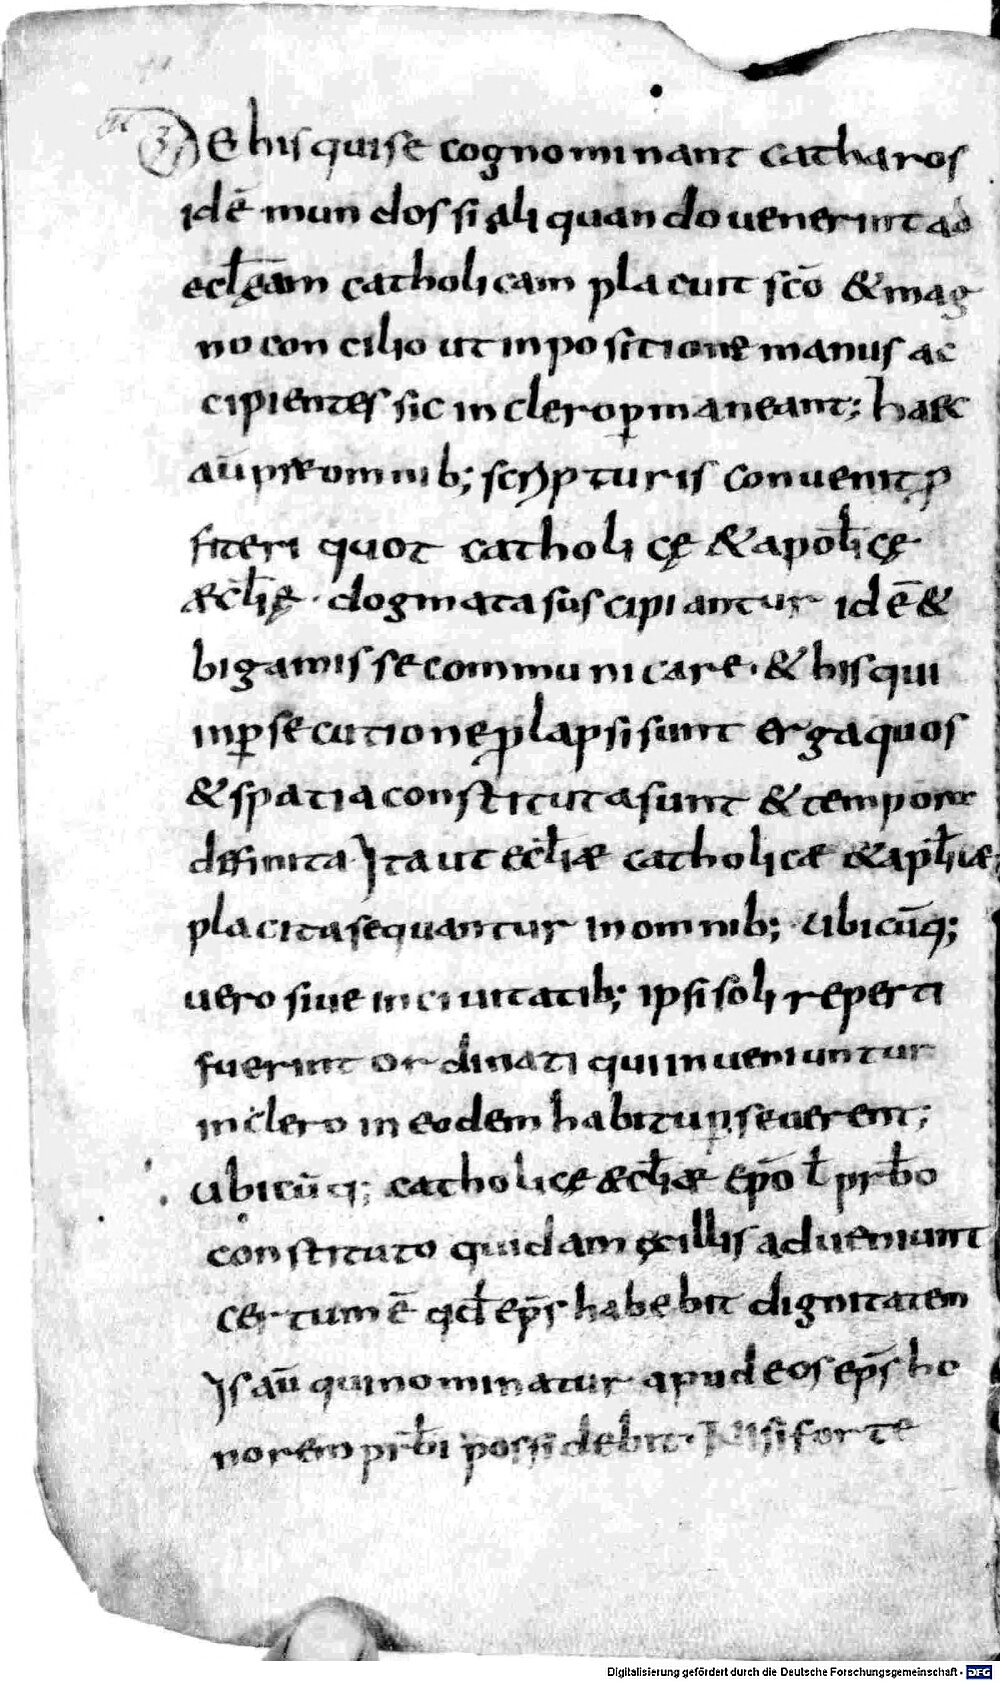 DE his qui se cognominant catharos
idē mundos si ali quando uenerint ad
eclęam catholicam placuit scō & mag
no con cilio ut inpositione manus ac
cipientes sic in clero ꝑmaneant; haec
aū prae omnib; scripturis conuenit ꝓ
fiteri quot catholi cę & apolicę
æclię · dogmata suscipiantur id ē &
bigamis se communi care · & his qui
in ꝑsecutione ꝓlapsi sunt erga quos
& spatia constituta sunt & tempora
deffinita Ita ut ecliæ catholicæ & apliæ
placita sequantur in omnib; · ubicūq;
uero siue in ciuitatib; ipsi soli reperti
fuerint ordinati qui inueniuntur
in clero in eodem habitu ꝑseuerent;
Ubicūq; catholicę æcliæ epō ł prbo
constituto quidam ex illis adueniunt
certum ē qd eps habebit dignitatem
Is aū qui nominatur apud eos eps ho
norem prbi possidebit · Nisi forte
Digitalisierung gefördert durch die Deutsche Forschungsgemeinschaft - DFG